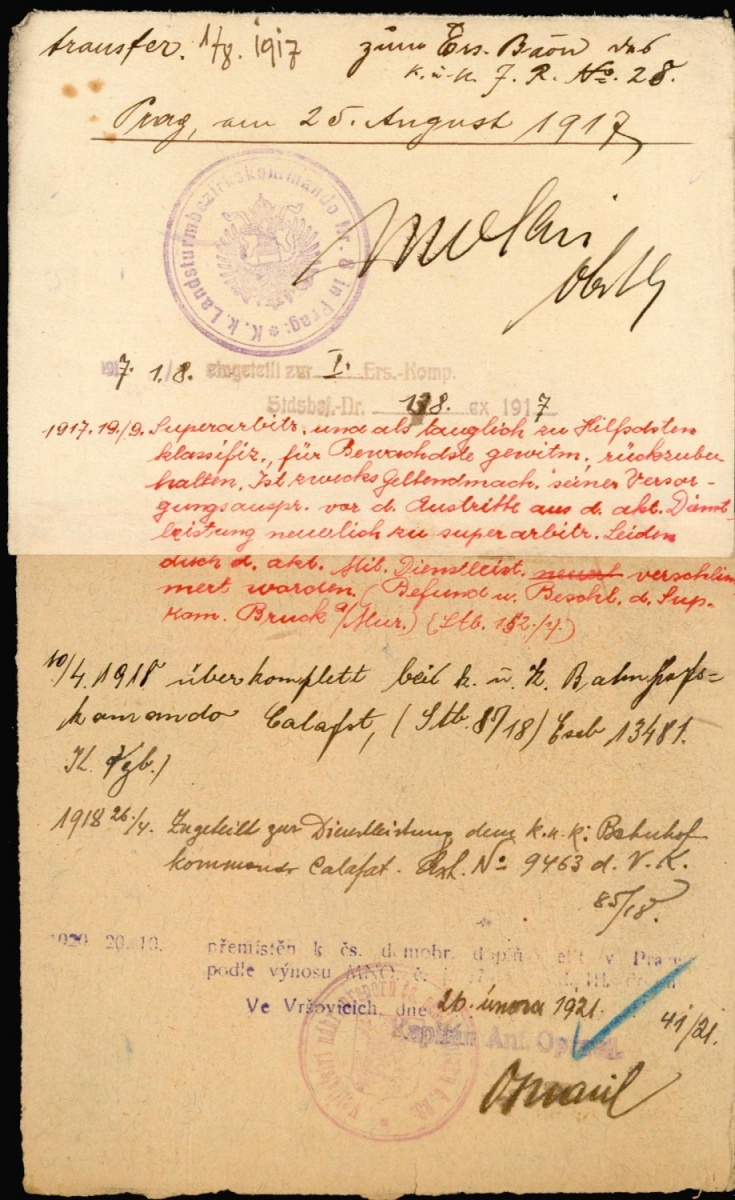 transfer. 1/8. 1917 zum Ers. Baon des
k. u. k. J. R. No. 28.
Prag, am 25. August 1917
K. k. Landsturmbezirkskommando Nr. 8 in Prag
Obstl
1917 1.8. eingeteilt zur I. Ers.-Komp.
Stdsbej.-Nr. 138. ex 1917
1917.19/9. Superarbitr. und als tauglich zu Hilfsdsten
klassifiz., für Bewachdste gewitm., rückzube
halten. Ist zwecks Geltendmach. seiner Versor-
gungsanspr. vor d. Austritte aus d. akt. Dienst-
leistung neuerlich zu superarbitr. Leiden
dsch d. akt. Mil. Dienstleist. neuerl verschlim
mert worden. (Befund u. Beschl. d. Sup.
kom. Bruck a/Mur.) (Stb. 152./7.)
10/4. 1918 überkomplett beit k. u. k. Bahnhofs-
kamando Calafat, (Stb. 87/18) Eseb 13481.
1918 26./4. Zugeteilt zur Dienstleistung dem k. u. k. Bahnhof
kommando Calafat. No 9463 d. V. K.
85/18.
1920 20. 10. přemístěn k čs. domobr. doplň velit v Praze
podle výnosu MNO. č.
Ve Vršovicích, dne 26. února 1921. 41/21.
Kapitán Ant.